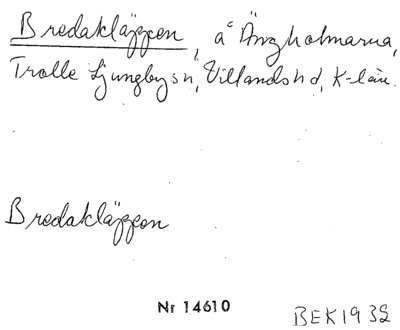 Bredakläppen, å Ängholmarna,
Trolle Ljungby sn, Villands hd, K-län.
Bredakläppen
Nr 14610
BEK 1932